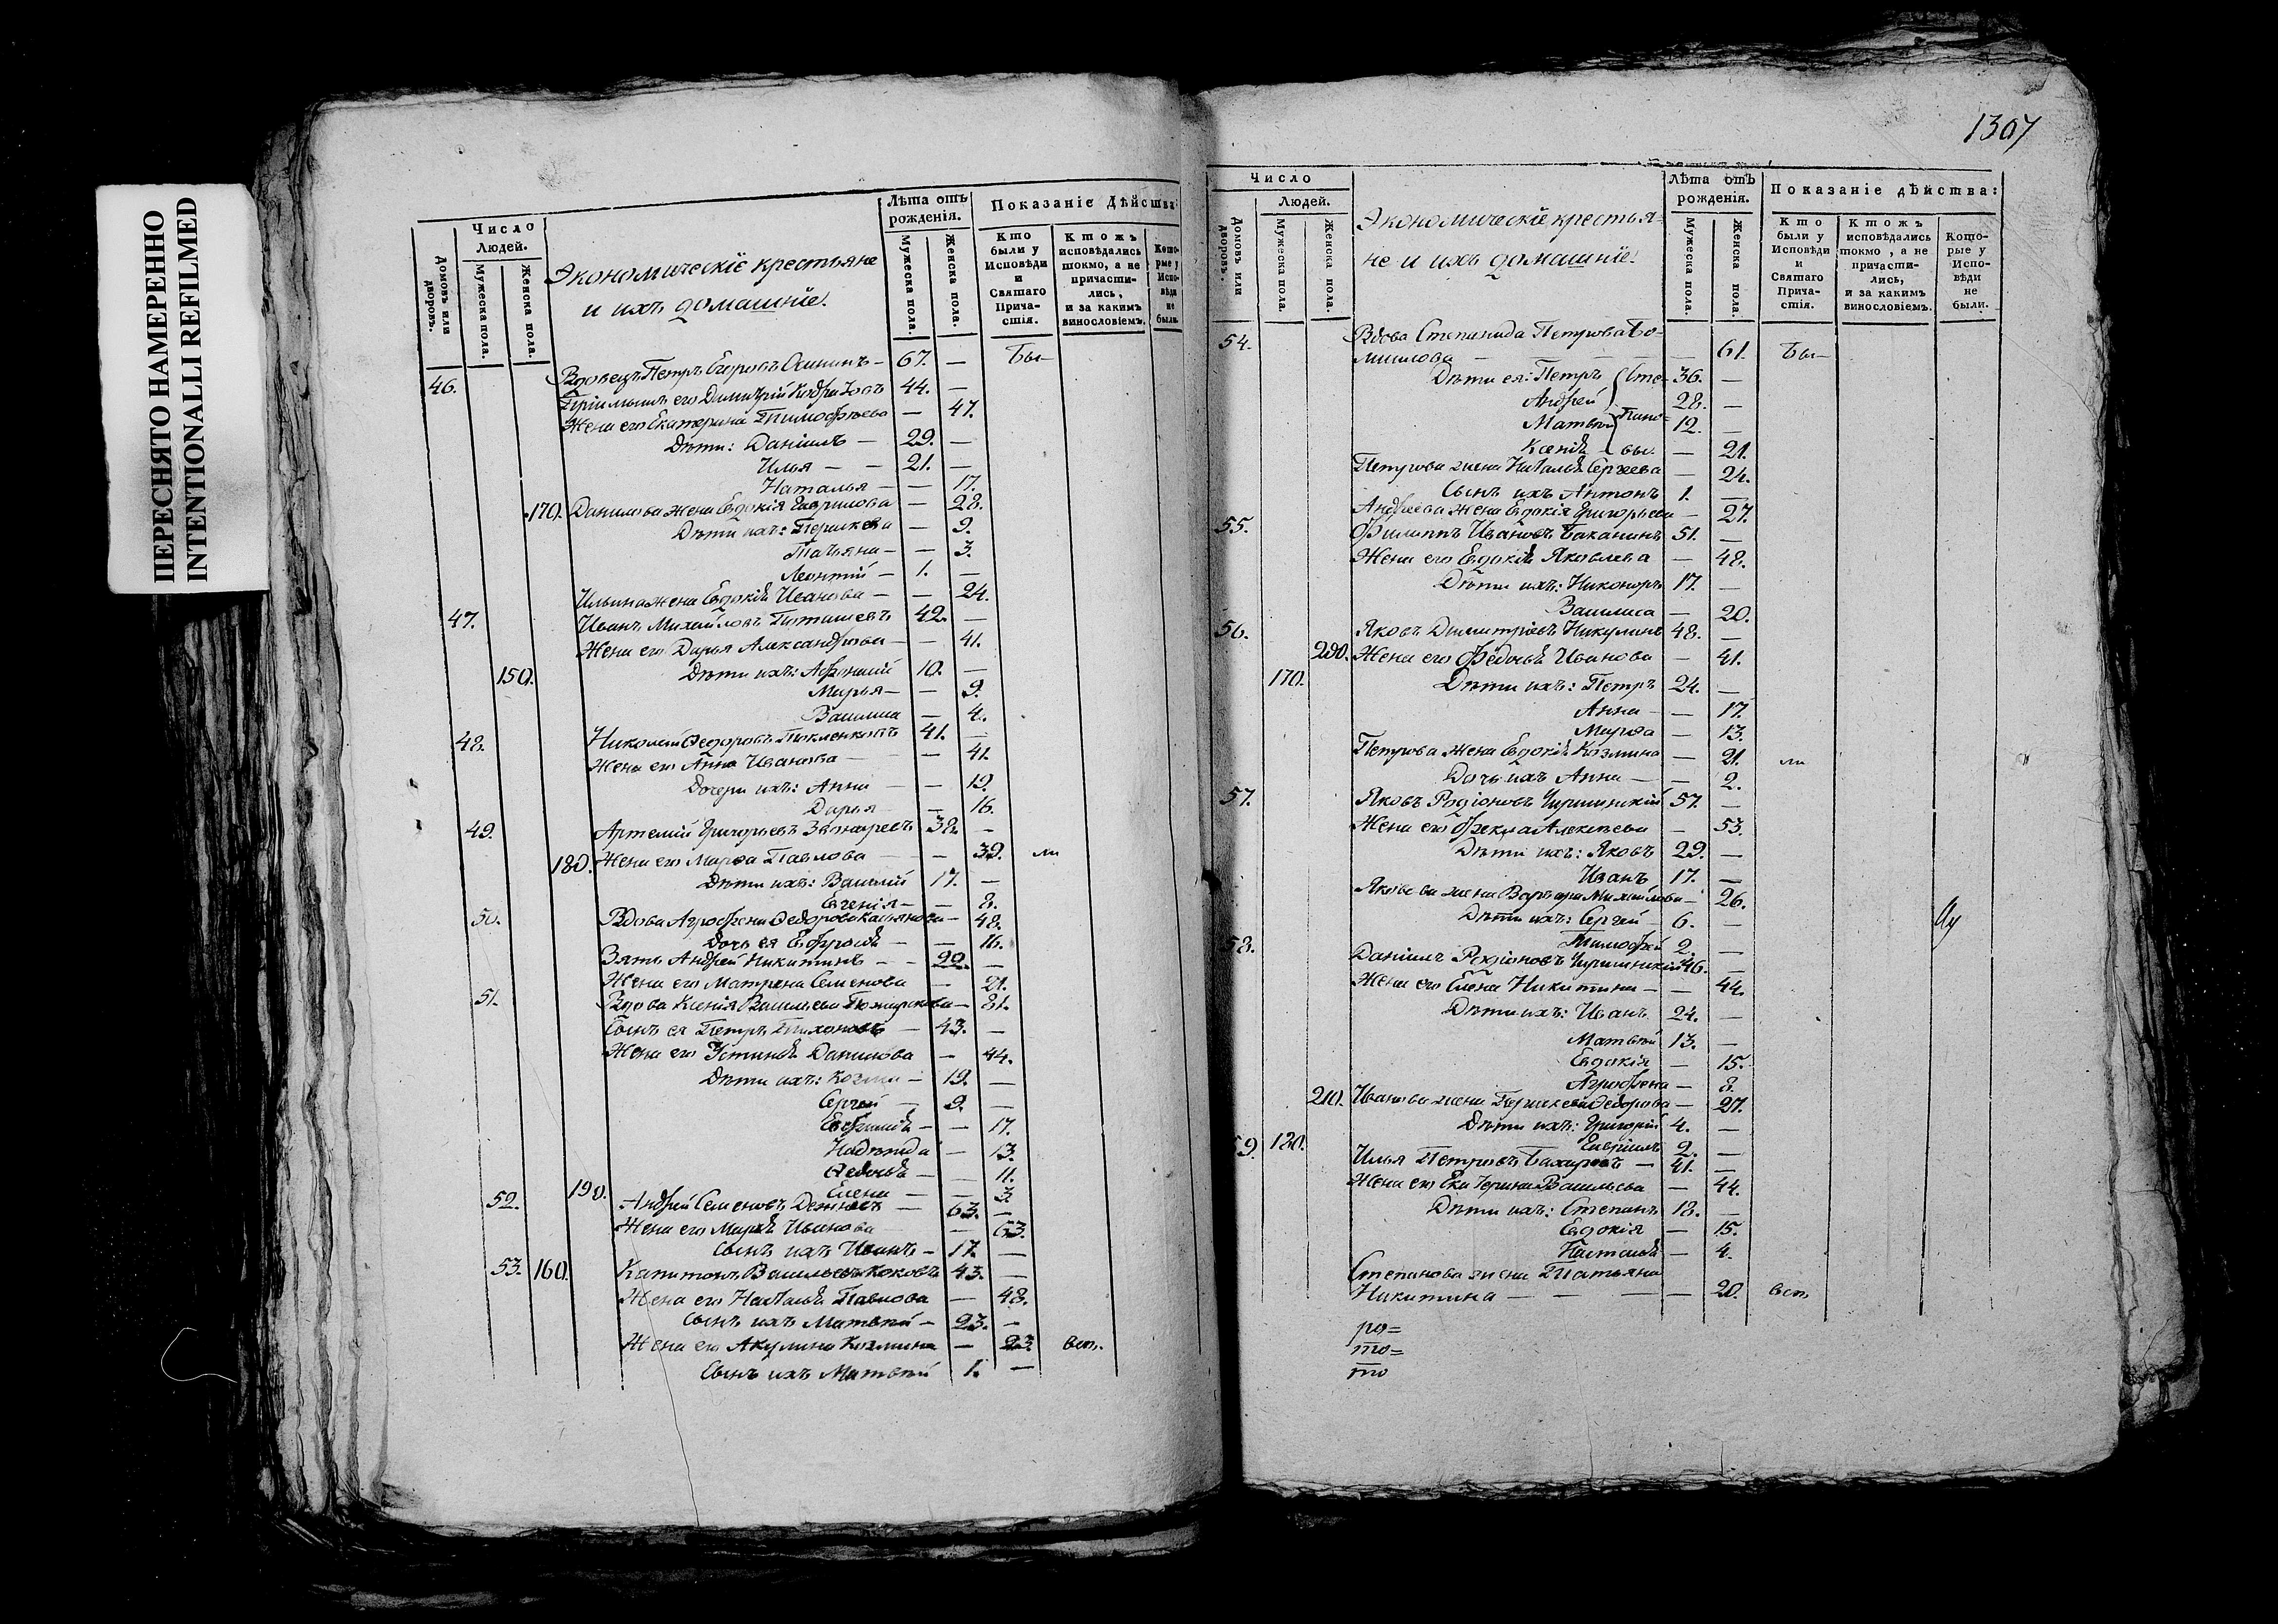 ПЕРЕСНЯТО НАМЕРЕННО
INTENTIONALLI REFILMED
Число
Людей.
Домовъ или дворовъ.
Мужеска пола.
Женска пола.
Экономическіе крестьяне
и ихъ домашніе.
Лѣта отъ рожденія.
Мужеска пола.
Женска пола.
Показаніе Дѣйства:
Кто были у Исповѣди и Святаго Прича-стія.
Ктожъ исповѣдались токмо, а не причасти-лись, и за какимъ винословіемъ.
Кото-рые у Испо-вѣди не были.
46. Вдовецъ Петръ Егоровъ 67. — Бы-
Пріимышъ его Димитрій 44. —
Жена его Екатерина Тимофѣева — 47.
Дѣти: Даніилъ — 29. —
Илья — — 21. —
Наталья — — 17.
170. Данилова жена Евдокія Гаврилова — 28.
Дѣти ихъ: Параскева — 9.
Татьяна — — 3.
Леонтій — 1. —
Ильина жена Евдокія Иванова — — 24.
47. Иванъ Михайловъ 42. —
Жена его Дарья Александрова — — 41.
150. Дѣти ихъ: Афонасій 10. —
Марья — — 9.
Василиса — 4.
48. Николай Ѳедоровъ 41. —
Жена его Анна Иванова — — 41.
Дочери ихъ: Анна — — 19.
Дарья — 16.
49. Артемій Григорьевъ Звонаревъ 38. —
180. Жена его Марѳа Павлова — — 39. ли
Дѣти ихъ: Василій 17. —
Евгенія — — 8.
50. Вдова Агрофена Ѳедорова Касьянова — 48.
дочь ея Евфросинія — — 16.
Зять Андрей Никитинъ — — 22. —
Жена его Матрена Семенова — 21.
51. Вдова Ксенія Васильева — 81.
Сынъ ея Петръ Тихоновъ — 43. —
Жена его Устинія Данилова — 44.
Дѣти ихъ: Козма — 19. —
Сергей — 9. —
Евфимія — — 17.
Надежда — 13.
Ѳедосья — — 11.
190. Елена — — 3.
52. Андрей Семеновъ — 63. —
Жена его Марія Иванова — 63.
Сынъ ихъ Иванъ — 17. —
53. 160. Капитонъ Васильевъ Коковъ 43. —
Жена его Наталія Павлова — 48.
Сынъ ихъ Матвѣй — 23. —
Жена его Акулина Козмина — 23. вст.
Сынъ ихъ Матвѣй 1. —
1307
Число
Людей.
Домовъ или дворовъ.
Мужеска пола.
Женска пола.
Экономическіе крестья-
не и ихъ домашніе.
Лѣта отъ рожденія.
Мужеска пола.
Женска пола.
Показаніе дѣйства:
Кто были у Исповѣди и Святаго Прича-стія.
Ктожъ исповѣдались токмо, а не причасти-лись, и за какимъ винословіемъ.
Кото-рые у Испо-вѣди не были.
54. Вдова Степанида Петрова
— — — — 61. Бы-
Дѣти ея: Петръ Сте- 36. —
Андрей 28. —
Матвѣй пано- 12. —
Ксенія вы. — 21.
Петрова жена Наталія Сергеева — 24.
Сынъ ихъ Антонъ 1. —
Андреева жена Евдокія Григорьева — 27.
55. Филиппъ Ивановъ Баканинъ 51. —
Жена его Евдокія Яковлева — 48.
Дѣти ихъ: Никоноръ 17. —
Василиса — 20.
56. Яковъ Димитріевъ Никулинъ 48. —
200. Жена его Ѳедосья Иванова — 41.
170. Дѣти ихъ: Петръ 24. —
Анна — — 17.
Марѳа — 13.
Петрова жена Евдокія Козмина — 21. ли
Дочь ихъ Анна — — 2.
57. Яковъ Родіоновъ 57. —
Жена его Фекла Алексѣева — 53.
Дѣти ихъ: Яковъ 29. —
Иванъ 17. —
Яковлева жена Варвара Михайлова — 26.
Дѣти ихъ: Сергей 6. —
Тимофей 2. —
58. Даніилъ Родіоновъ 46. —
Жена его Елена Никитина — — 44.
Дѣти ихъ: Иванъ 24. —
Матвѣй 13. —
Евдокія — 15.
Агрофена — 8.
210. Иванова жена Параскева Ѳедорова — 27.
Дѣти ихъ: Григорій 4. —
Гавріилъ 2. —
59. 180. Илья Петровъ Бахаревъ — 41. —
Жена его Екатерина Васильева — 44.
Дѣти ихъ: Степанъ 18. —
Евдокія — 15.
Наталія — 4.
Степанова жена Татьяна
Никитина — — — — 20. вст.
ро=
то=
то